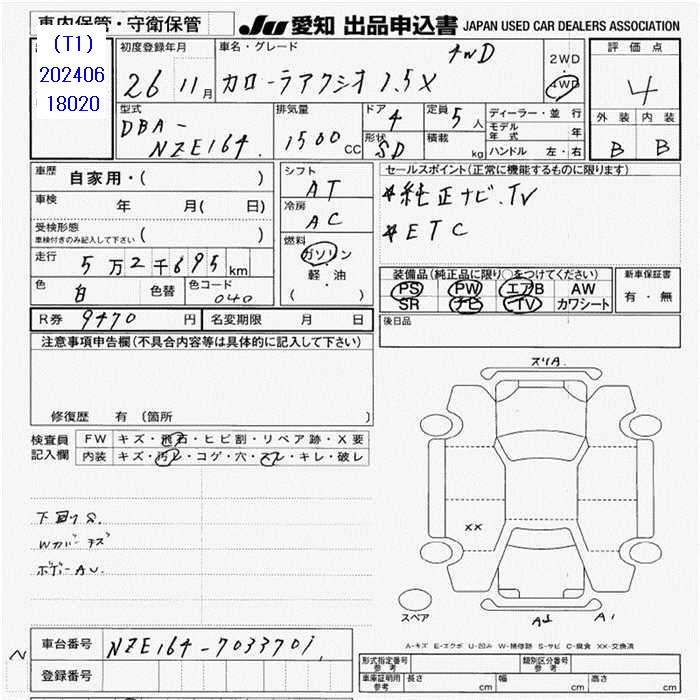 車内保管・守衛保管
JU 愛知 出品申込書 JAPAN USED CAR DEALERS ASSOCIATION
(T1)
202406
18020
初度登録年月
26 11月
車名・グレード
カローラアクシオ 1.5X 4WD
2WD
4WD
評価点
4
外装 内装
B B
型式
DBA-
NZE164
排気量
1500 CC
ドア 4
形状 SD
定員 5人
積載 kg
ディーラー・並行
モデル年式 年
ハンドル 左・右
車歴 自家用・( )
車検 年 月( 日)
受検形態
車検付きのみ記入して下さい ( )
走行 5万2千695km
色 白 色替 色コード 040
シフト
AT
冷房
AC
燃料
ガソリン
軽・油
( )
セールスポイント(正常に機能するものに限ります)
*純正ナビ.TV
*ETC
装備品(純正品に限り○をつけてください)
PS PW エアB AW
SR ナビ TV カワシート
新車保証書
有・無
後日品
R券 9470 円 名変期限 月 日
注意事項申告欄(不具合内容等は具体的に記入して下さい)
修復歴 有 (箇所 )
検査員
記入欄
FW キズ・飛石・ヒビ割・リペア跡・X要
内装 キズ・汚レ・コゲ・穴・スレ・キレ・破レ
下回りS.
Wカバーキズ
ボデーAU.
スリA.
XX
スペア
A1
A-キズ E-エクボ U-凹み W-補修跡 S-サビ C-腐食 XX-交換済
車台番号 NZE164-7033701
登録番号
形式指定番号
参考
類別区分番号
参考
車庫証明用
参考
長さ cm 幅 cm 高さ cm